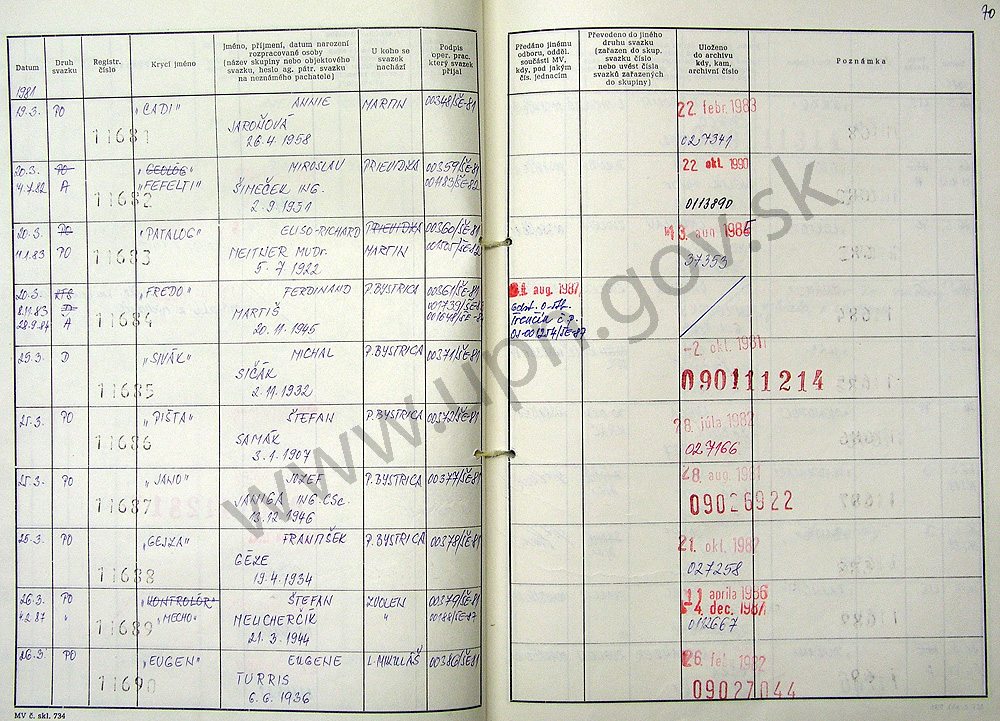 70
Datum
Druh svazku
Registr. číslo
Krycí jméno
Jméno, příjmení, datum narození rozpracované osoby (název skupiny nebo objektového svazku, heslo ag. pátr. svazku na neznámého pachatele)
U koho se svazek nachází
Podpis oper. prac. který svazek přijal
Předáno jinému odboru, odděl. součásti MV, kdy, pod jakým čís. jednacím
Převedeno do jiného druhu svazku (zařazen do skup. svazku číslo nebo uvést čísla svazků zařazených do skupiny)
Uloženo do archivu kdy, kam, archivní číslo
Poznámka
1981
19.3. PO „CADI" ANNIE MARTIN 00348/ŠE-81 22. febr. 1983
11681 JAROŇOVÁ
26.4.1958 027341
20.3. PO „GEOLÓG" MIROSLAV PRIEVIDZA 00359/ŠE-81 22. okt. 1990
4.7.82 A „FEFELTI" ŠIMEČEK ING. 001183/ŠE-82
11682 2.9.1951 0113890
20.3. PO „PATALOG" ELISO-RICHARD PRIEVIDZA 00360/ŠE-81 13. aug. 1985
11.1.83 PO 11683 MEITNER MUDr. MARTIN
5.7.1922 37353
20.3. „FREDO" FERDINAND P.BYSTRICA 00361/ŠE-81 aug. 1987
2.11.83 D MARTIŠ 001739/ŠE-83
28.9.84 A 11684 20.11.1945 001648/ŠE-84 Trenčín č.p.
OS-001254/ŠE-87
25.3. D „SIVÁK" MICHAL P.BYSTRICA 00371/ŠE-81 -2. okt. 1981
11685 SIČÁK
2.11.1932 090111214
25.3. PO „PIŠTA" ŠTEFAN P.BYSTRICA 00372/ŠE-81 28. júla 1982
11686 SAMÁK
3.1.1907 027166
25.3. PO „JANO" JOZEF P.BYSTRICA 00377/ŠE-81 28. aug. 1981
11687 JANIGA ING.CSc.
13.12.1946 09026922
25.3. PO „GEJZA" FRANTIŠEK P.BYSTRICA 00378/ŠE-81 21. okt. 1982
11688 GÉZE
19.4.1934 027258
26.3. PO „KONTROLÓR" ŠTEFAN ZVOLEN 00379/ŠE-81 11. apríla 1986
4.2.87 " „MECHO" MEUCHERČÍK " 00188/ŠE-87 -4. dec. 1987
11689 21.3.1944 0112667
26.3. PO „EUGEN" EUGENE L.MIKULÁŠ 00386/ŠE-81 26. feb. 1982
11690 TURRIS
6.6.1936 09027044
MV č. skl. 734
www.upn.gov.sk